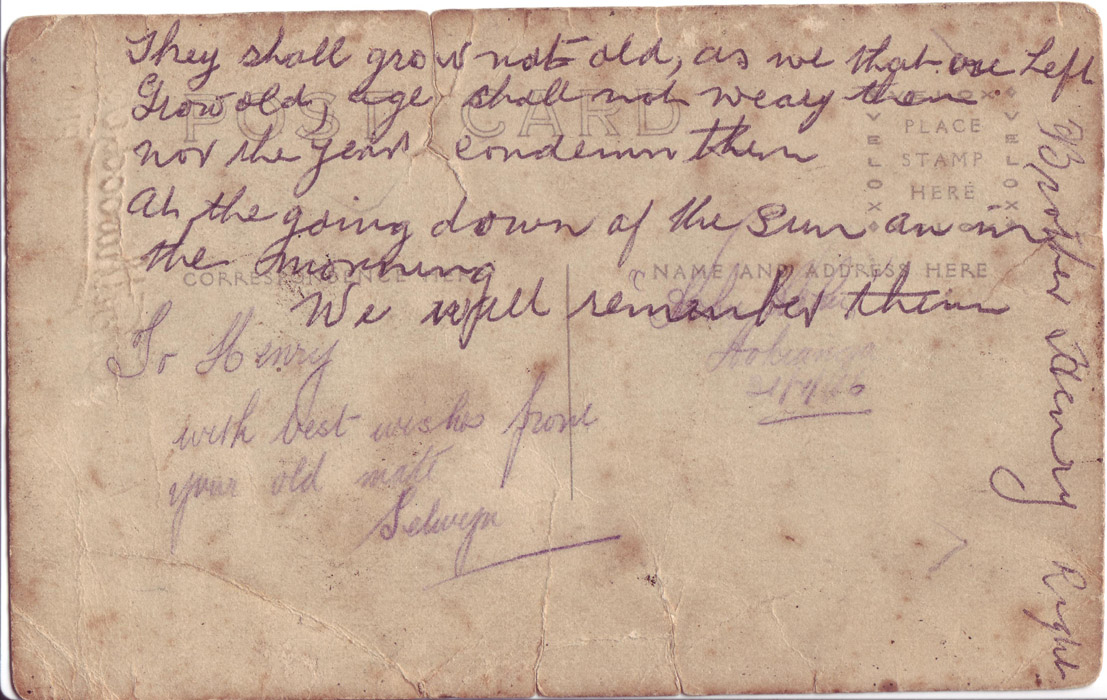 They shall grow not old, as we that are Left
Grow old, age shall not weary them
nor the years condemn them
At the going down of the Sun an in
the morning
We will remember them
POST CARD
PLACE
STAMP
HERE
VELOX
VELOX
VELOX
CORRESPONDENCE HERE
NAME AND ADDRESS HERE
To Henry
with best wishes from
your old mate
Selwyn
Brother Henry Right